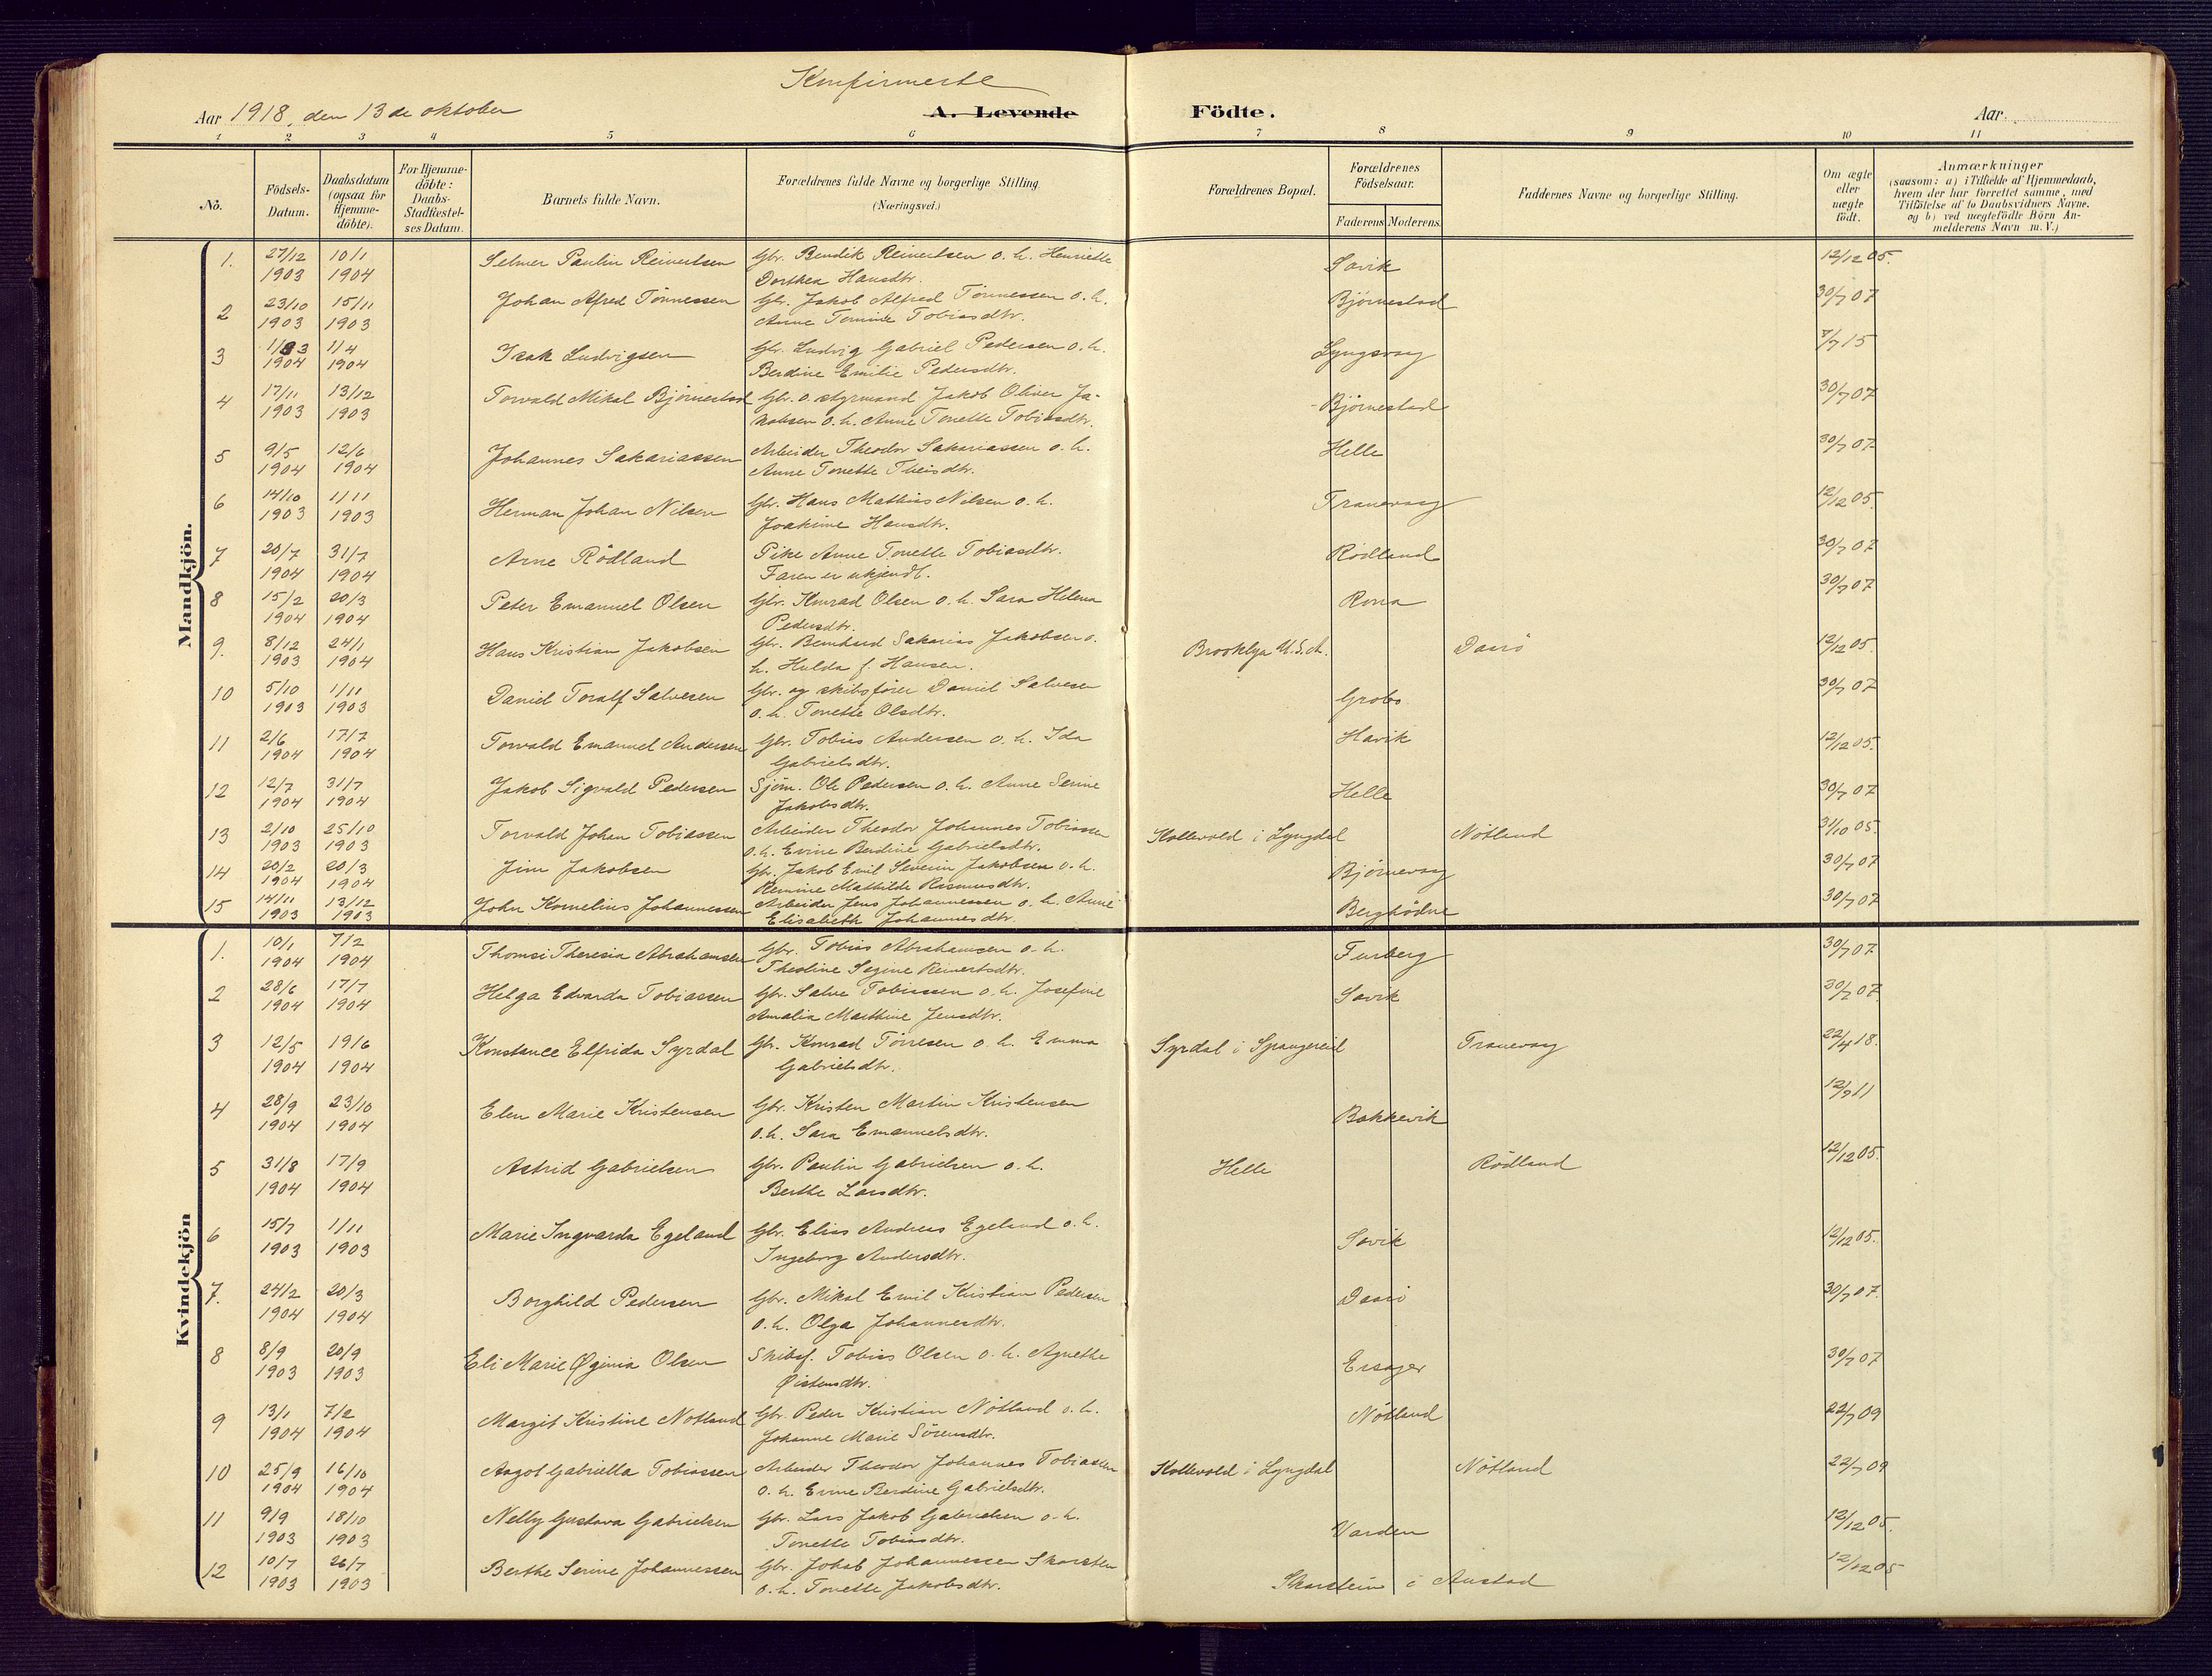 Konfirmerte
Aar 1918, den 13de oktober
A. Levende Födte.
Aar.
1 2 3 4 5 6 7 8 9 10 11
No.
Födsels-Datum.
Daabsdatum (ogsaa for Hjemme-döbte).
For Hjemme-döbte: Daabs-Stadfæstel-ses Datum.
Barnets fulde Navn.
Forældrenes fulde Navne og borgerlige Stilling. (Næringsvei.)
Forældrenes Bopæl.
Forældrenes Födselsaar.
Faderens Moderens.
Faddernes Navne og borgerlige Stilling.
Om ægte eller uægte födt.
Anmærkninger
(saasom: a) i Tilfælde af Hjemmedaab, hvem der har forrettet samme, med Tilföielse af to Daabsvidners Navne, og b) ved uægtefödte Börn An-melderens Navn m. V.)
Mandkjön.
1. 27/12 1903 10/1 1904 Selmer Paulin Reinertsen Gbr. Bendik Reinertsen o. h. Henriette Sovik 12/12 05.
Dorthea Hansdtr.
2 23/10 1903 15/11 1903 Johan Alfred Tönnessen Gbr. Jakob Alfred Tönnessen o. h. Björnestad 30/7 07
Anne Tomine Tobiasdtr.
3 1/3 1904 1/4 1904 Isak Ludvigsen Gbr. Ludvig Gabriel Pedersen o. h. Lyngsvag 7/7 15
Berdine Emilie Pedersdtr.
4 17/11 1903 13/12 1903 Torvald Mikal Björnestad Gbr. o. styrmand Jakob Oliver Ja- Björnestad 30/7 07
kobsen o. h. Anne Tonette Tobiasdtr.
5 9/5 1904 12/6 1904 Johannes Sakariassen Arbeider Theodor Sakariassen o. h. Helle 30/7 07
Anne Tonette Theisdtr.
6 14/10 1903 1/11 1903 Herman Johan Nilsen Gbr. Hans Mathias Nilsen o. h. Tranevag 12/12 05.
Joakime Hansdtr.
7 20/7 1904 31/7 1904 Arne Rödland Pike Anne Tonette Tobiasdtr. Rödland 30/7 07
Faren er ukjendt.
8 15/2 1904 20/3 1904 Peter Emanuel Olsen Gbr. Konrad Olsen o. h. Sara Helena Rona 30/7 07
Pedersdtr.
9. 8/12 1903 24/1 1904 Hans Kristian Jakobsen Gbr. Bernhard Sakarias Jakobsen o. Brooklyn U.S.A. Dasiö 12/12 05.
h. Hulda f. Hansen.
10 5/10 1903 1/11 1903 Daniel Toralf Salvesen Gbr. og skibsförer Daniel Salvesen Grobs 30/7 07
o. h. Tonette Olsdtr.
11 2/6 1904 17/7 1904 Torvald Emanuel Andersen Gbr. Tobias Andersen o. h. Ida Havik 12/12 05.
Gabrielsdtr.
12 12/7 1904 31/7 1904 Jakob Sigvald Pedersen Sjöm. Ole Pedersen o. h. Anne Serine Helle 30/7 07
Jakobsdtr.
13 2/10 1903 25/10 1903 Torvald Johan Tobiassen Arbeider Theodor Johannes Tobiassen Kollevold i Lyngdal Nötland 31/10 05.
o. h. Evine Berdine Gabrielsdtr.
14 20/2 1904 20/3 1904 Jim Jakobsen Gbr. Jakob Emil Severin Jakobsen o. h. Björnevag 30/7 07
Remine Mathilde Rasmusdtr.
15 14/11 1903 13/12 1903 John Kornelius Johannessen Arbeider Jens Johannessen o. h. Anne Berghödne 30/7 07
Elisabeth Johannesdtr.
Kvindekjön
1. 10/1 1904 7/2 1904 Thomsi Theresia Abrahamsen Gbr. Tobias Abrahamsen o. h. Furberg 30/7 07
Theoline Segine Reinertsdtr.
2 28/6 1904 17/7 1904 Helga Edvarda Tobiassen Gbr. Salve Tobiassen o. h. Josefine Sovik 30/7 07.
Amalia Marthine Jensdtr.
3 12/5 1904 19/6 1904 Konstance Elfrida Syrdal Gbr. Konrad Törresen o. h. Emma Syrdal i Spangereid Tranevag 22/4 18.
Gabrielsdtr.
4 28/9 1904 23/10 1904 Elen Marie Kristensen Gbr. Kristen Martin Kristensen Bakkevik 12/9 11
o. h. Sara Emanuelsdtr.
5 31/8 1904 17/9 1904 Astrid Gabrielsen Gbr. Paulin Gabrielsen o. h. Helle Rödland 12/12 05.
Berthe Larsdtr.
6 15/7 1903 1/11 1903 Marie Ingvarda Egeland Gbr. Elias Andreas Egeland o. h. Sovik 12/12 05.
Ingeborg Andersdtr.
7. 24/2 1904 20/3 1904 Borghild Pedersen Gbr. Mikal Emil Kristian Pedersen Dasiö 30/7 07.
o. h. Olga Johannesdtr.
8 8/9 1903 20/9 1903 Eli Marie Øginia Olsen Skibsf. Tobias Olsen o. h. Agnethe Ersager 30/7 07
Øistensdtr.
9 13/1 1904 7/2 1904 Margit Kristine Nötland Gbr. Peder Kristian Nötland o. h. Nötland 22/7 09
Johanne Marie Sörensdtr.
10 25/9 1904 16/10 1904 Aagot Gabriella Tobiassen Arbeider Theodor Johannes Tobiassen Kollevold i Lyngdal Nötland 22/7 09
o. h. Evine Berdine Gabrielsdtr.
11 9/9 1903 18/10 1903 Nelly Gustava Gabrielsen Gbr. Lars Jakob Gabrielsen o. h. Varden 12/12 05.
Tonette Tobiasdtr.
12 10/7 1903 26/7 1903 Berthe Serine Johannessen Gbr. Jakob Johannessen Skarsten Skarstein i Austad 12/12 05
o. h. Tonette Jakobsdtr.